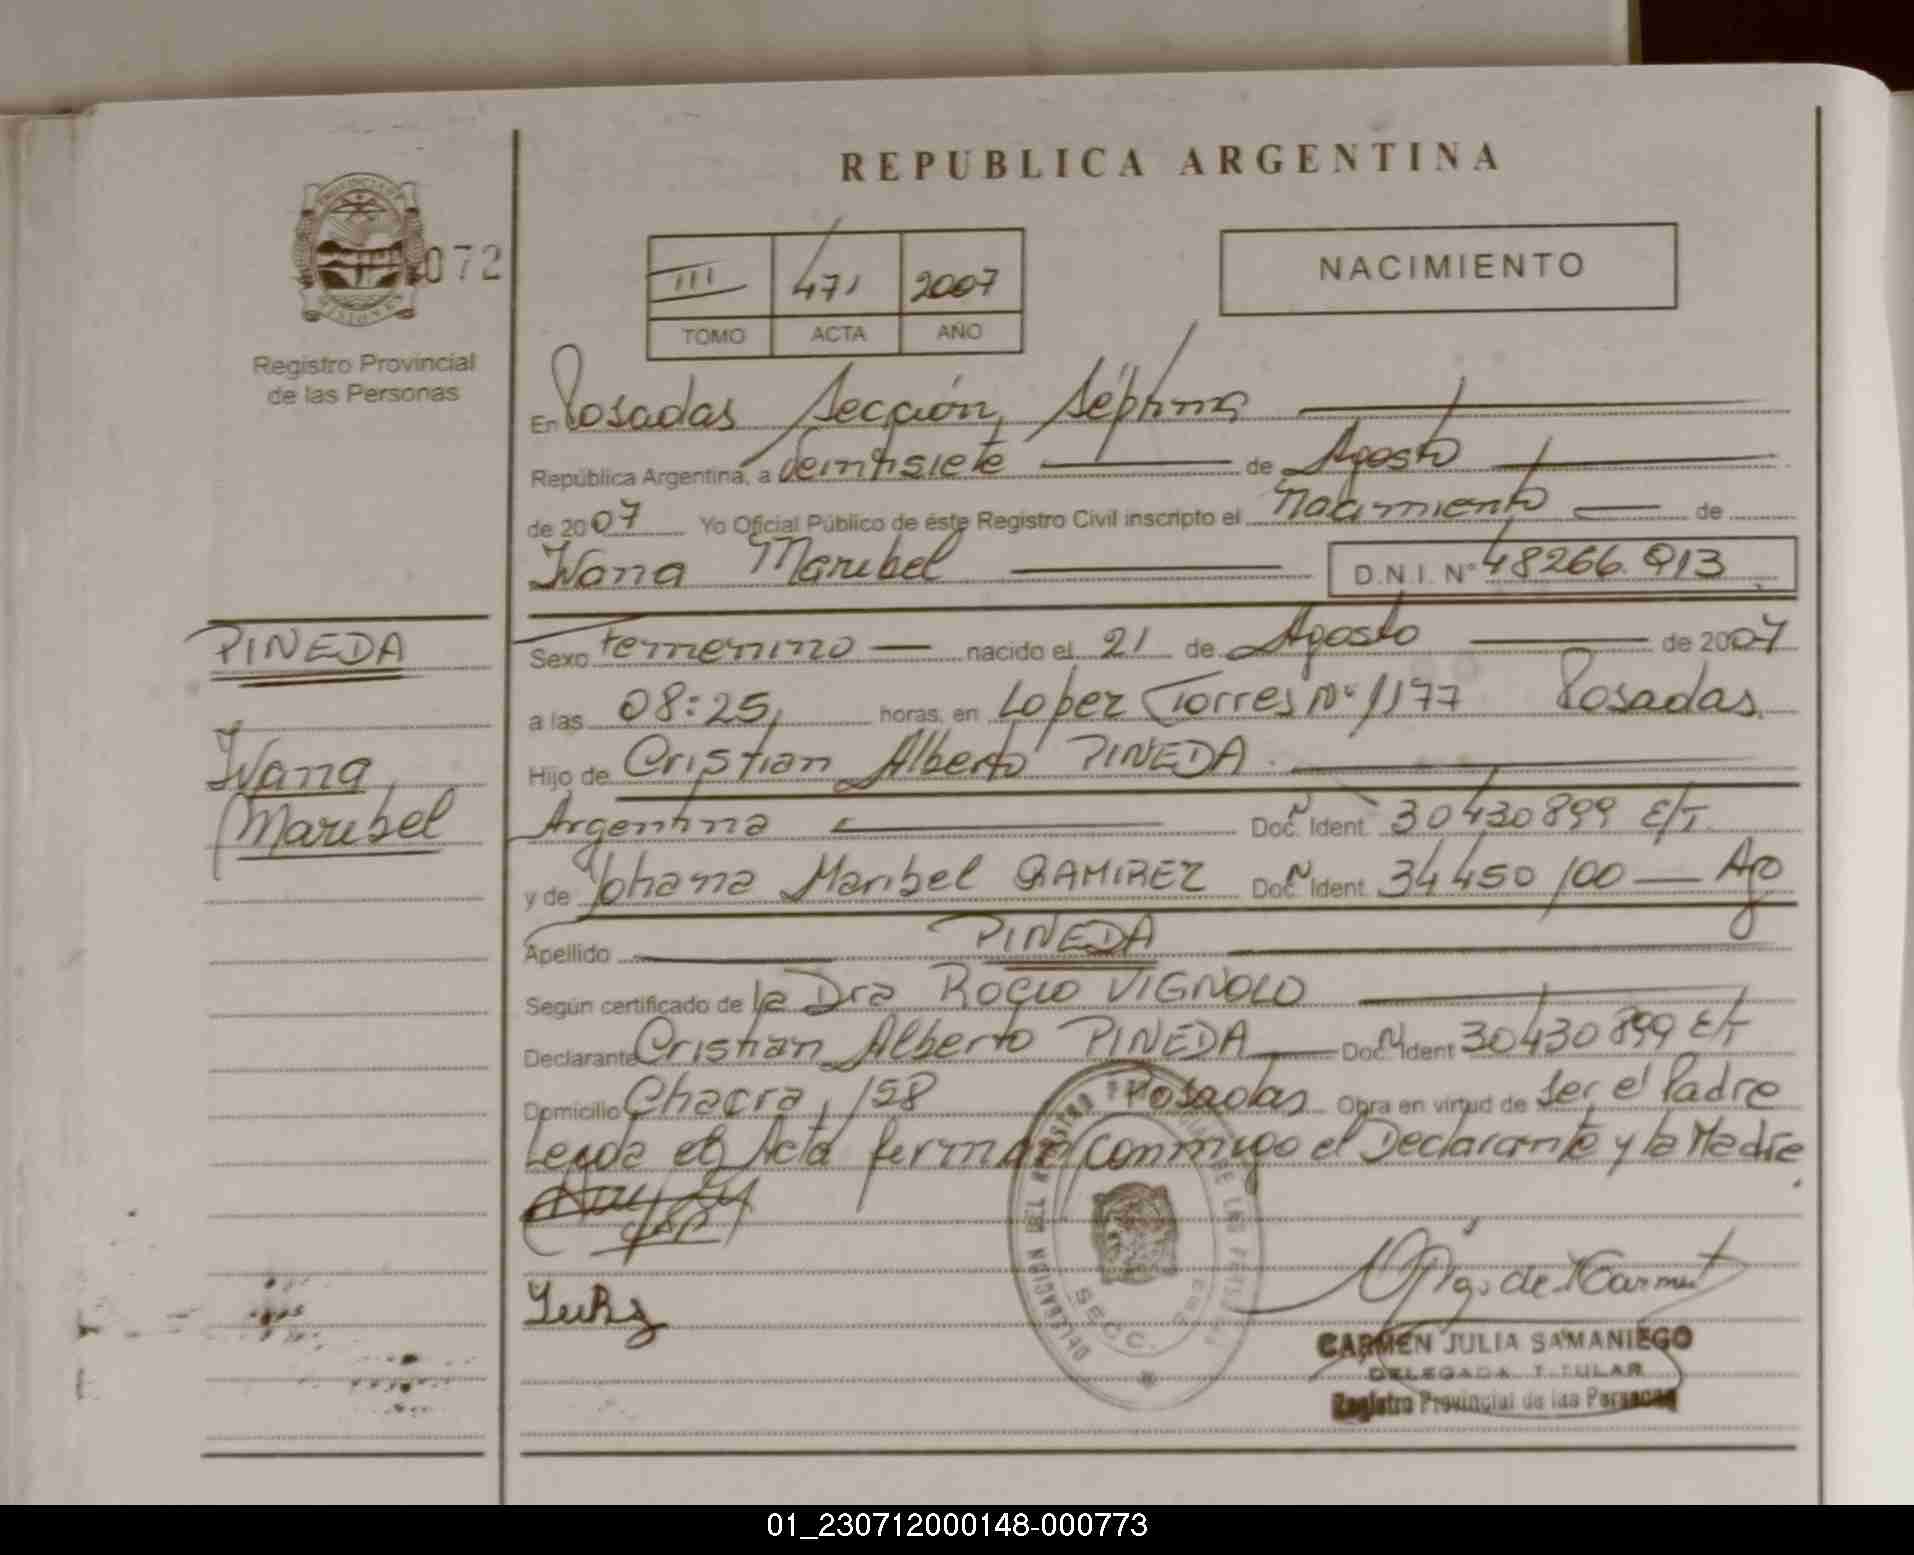 REPUBLICA ARGENTINA
072
Registro Provincial
de las Personas
III 471 2007
TOMO ACTA AÑO
NACIMIENTO
En Posadas Sección Séptima
República Argentina, a Veintisiete de Agosto
de 2007 Yo Oficial Público de éste Registro Civil inscripto el Nacimiento de
Ivana Maribel D.N.I. N° 48266.913
PINEDA
Ivana
Maribel
Sexo femenino nacido el 21 de Agosto de 2007
a las 08:25, horas, en Lopez Torres Nº 1177 Posadas.
Hijo de Cristian Alberto PINEDA.
Argentina Doc. Ident. 30430899 E/T.
y de Yohana Maribel RAMIREZ Doc. Ident. 34450100 Ago
Apellido PINEDA
Según certificado de la Dra Rocio VIGNOLO
Declarante Cristian Alberto PINEDA Doc. Ident 30430899 E/T
Domicilio Chacra 158 Posadas Obra en virtud de ser el Padre
Leyda el Acta ferman conmigo el Declarante y la Madre.
CARMEN JULIA SAMANIEGO
DELEGADA TITULAR
Registro Provincial de las Personas
01_230712000148-000773